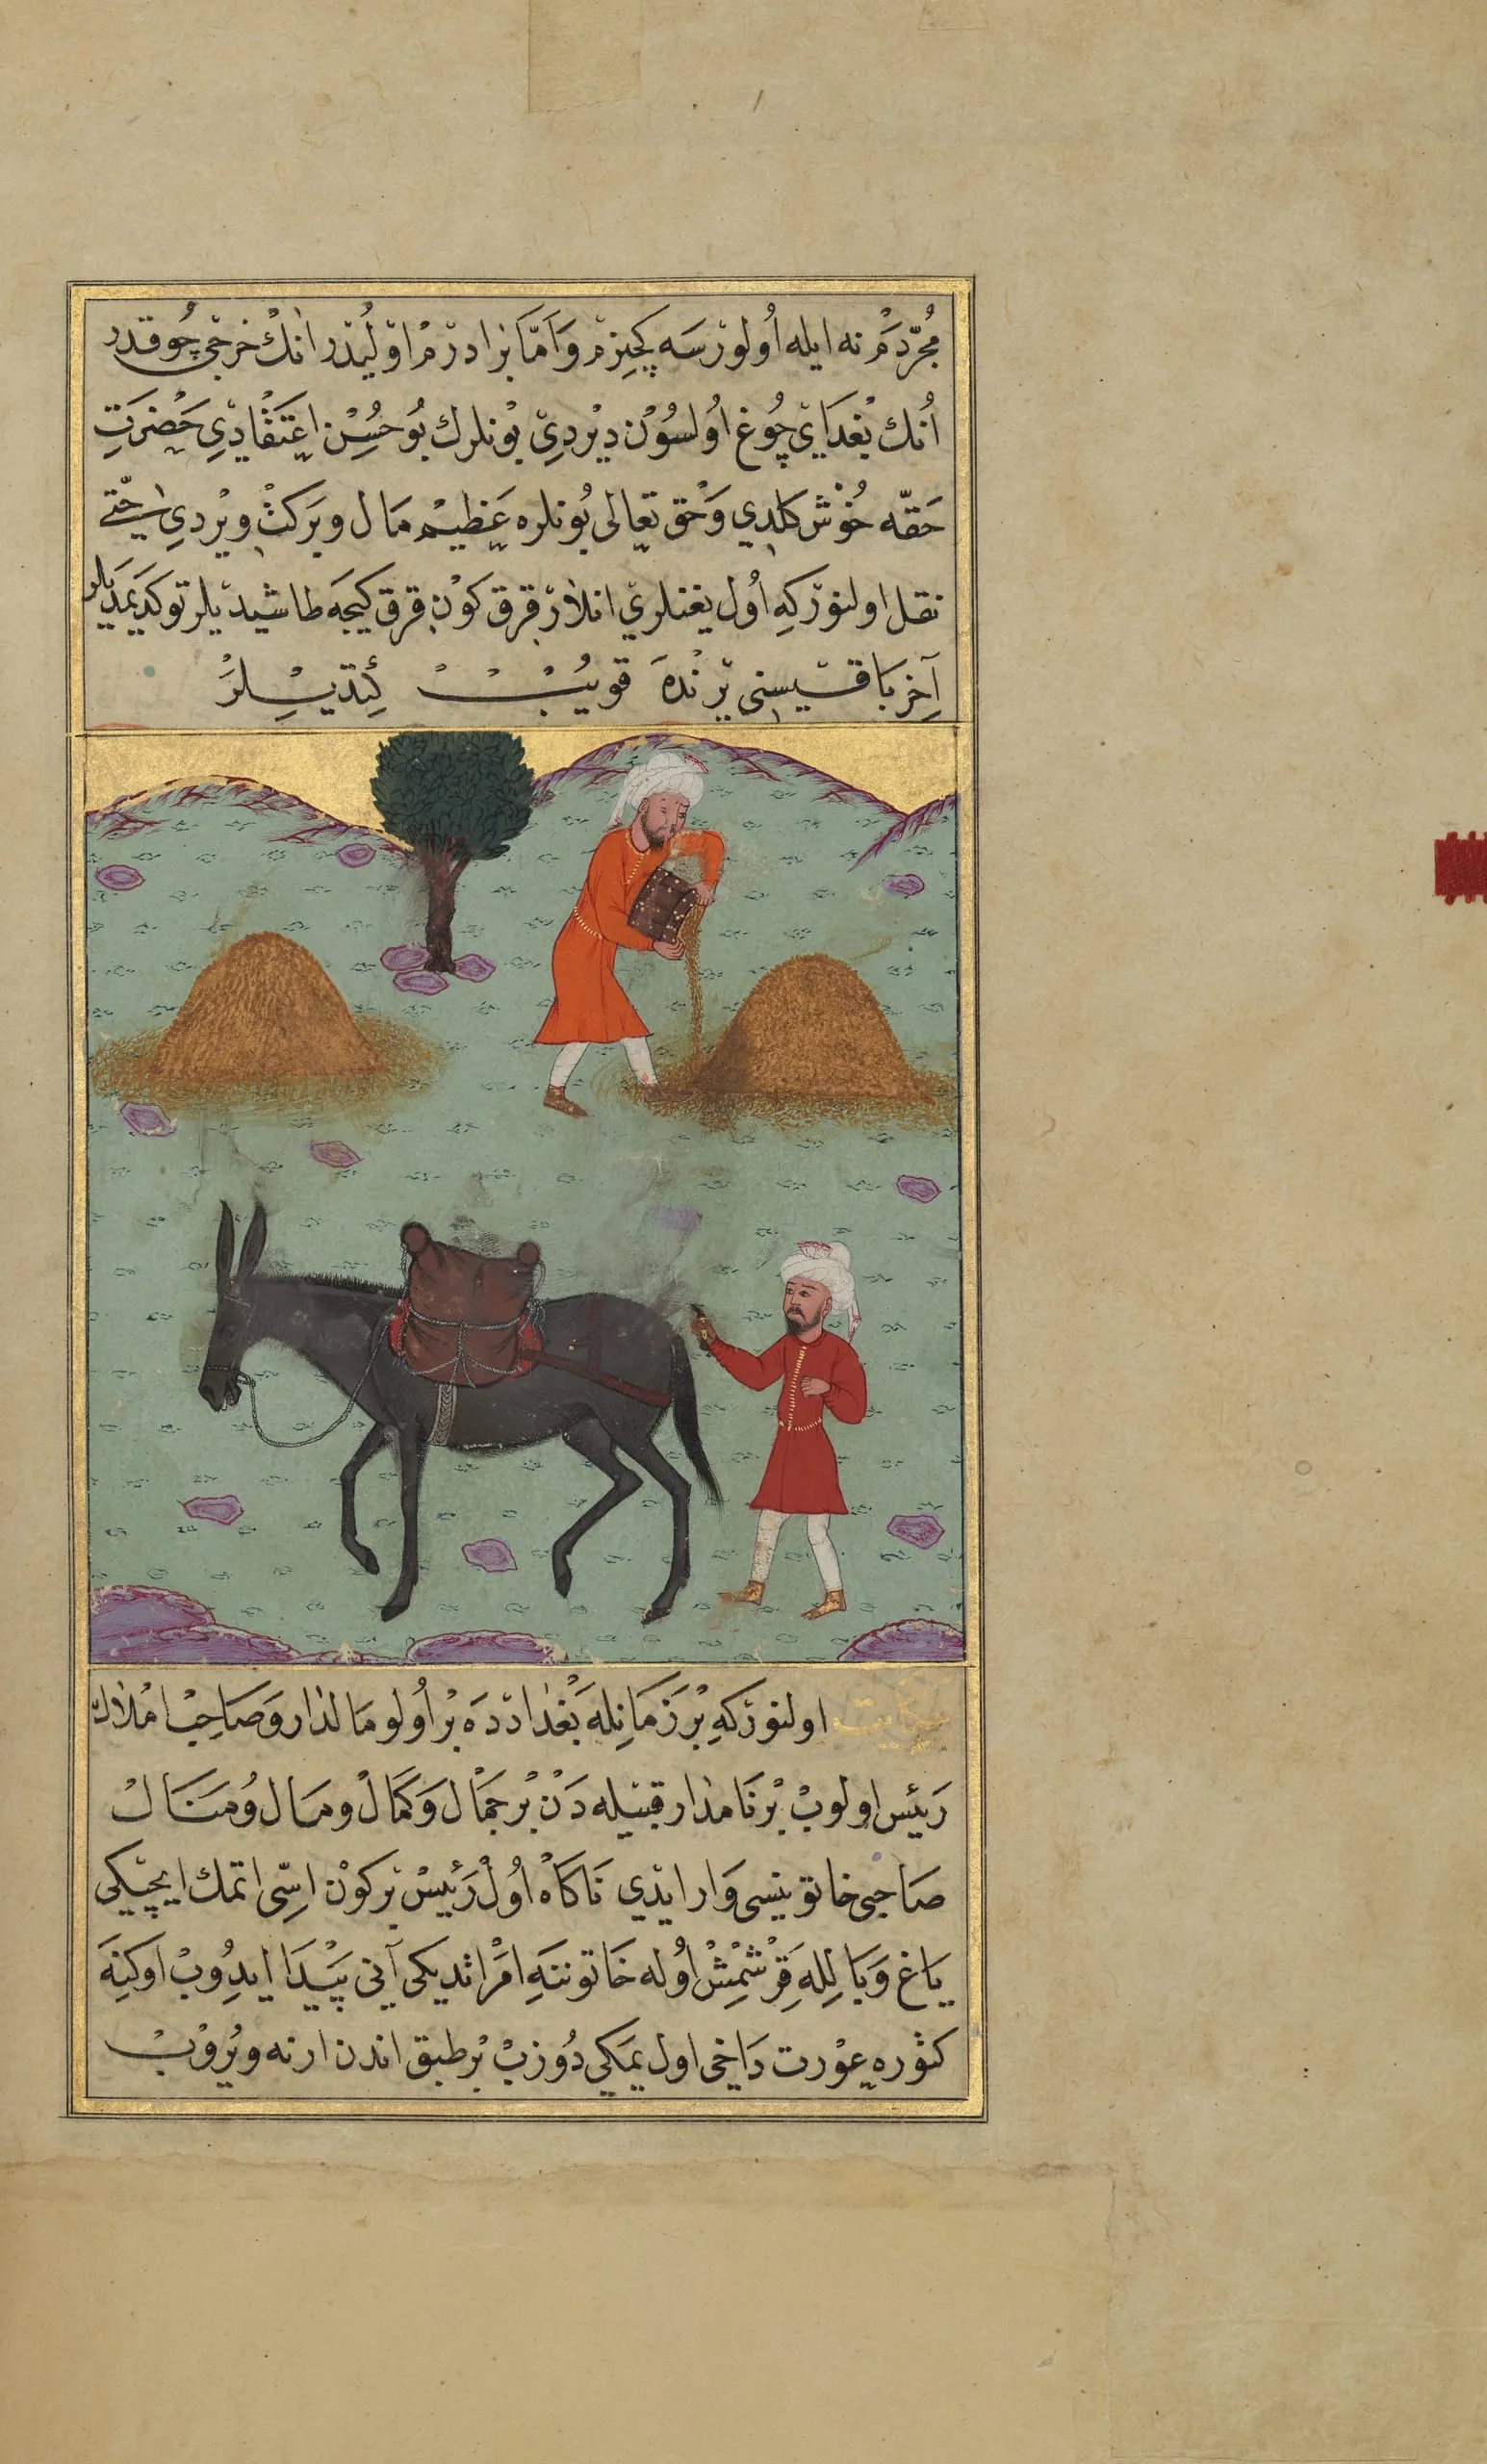 مُجَرَّدَمْ نه ایله اُولورْسَه کَچِنِرْمْ وَاَمَّا بْرَادَرْمْ اوْلُیدْرْ انٰكْ خرجی چُوقدر
اُنك بُغدَایْ چُوغ اُولسُوْن دیْردِیْ بوُنلرك بُو حُسِنْ اِعتَقْادِیِ حَضْرَتِ
حَقّه خُوْش کلدِي وَحْق تعالی بُونلره عَظیمْ مَال وبَرکتْ ویْردِي حَتّٰی
نقل اولنورْکهِ اُول یغنلریْ انلاَرْ قرق کوْن قرق کیجَه طاشیدیلر توکَدیمَدیلر
آخِر بَاقیسِنی یرنْدهَ قویُبْ کِتدیلِرْ
حکایت اولنورْکهِ بْرزَمَانلهِ بَغْداددَه بْر اُولو مَالدار وَصَاحِبْ امْلاك
رَئیس اولوبْ بْر نَامدار قبیله دَنْ بْر جَمَالْ وَکَمَالْ ومَال وُمنَالْ
صَاحبی خاتوینسی وَار ایدْي نَاکَاهْ اُولْ رَئیسْ بْر کوْن اسّی اتمَك ایچیکی
یَاغ وَبَالِلهِ قَرْشمِشْ اُوله خَاتوننهِ امَرْ اتدیکی آنی پَیْدَا ایدِوُبْ اوکنهَ
کتوره عوْرت دَاخی اول یمَکی دُوزبْ بْر طبق اندن ارنه ویْرُوبْ